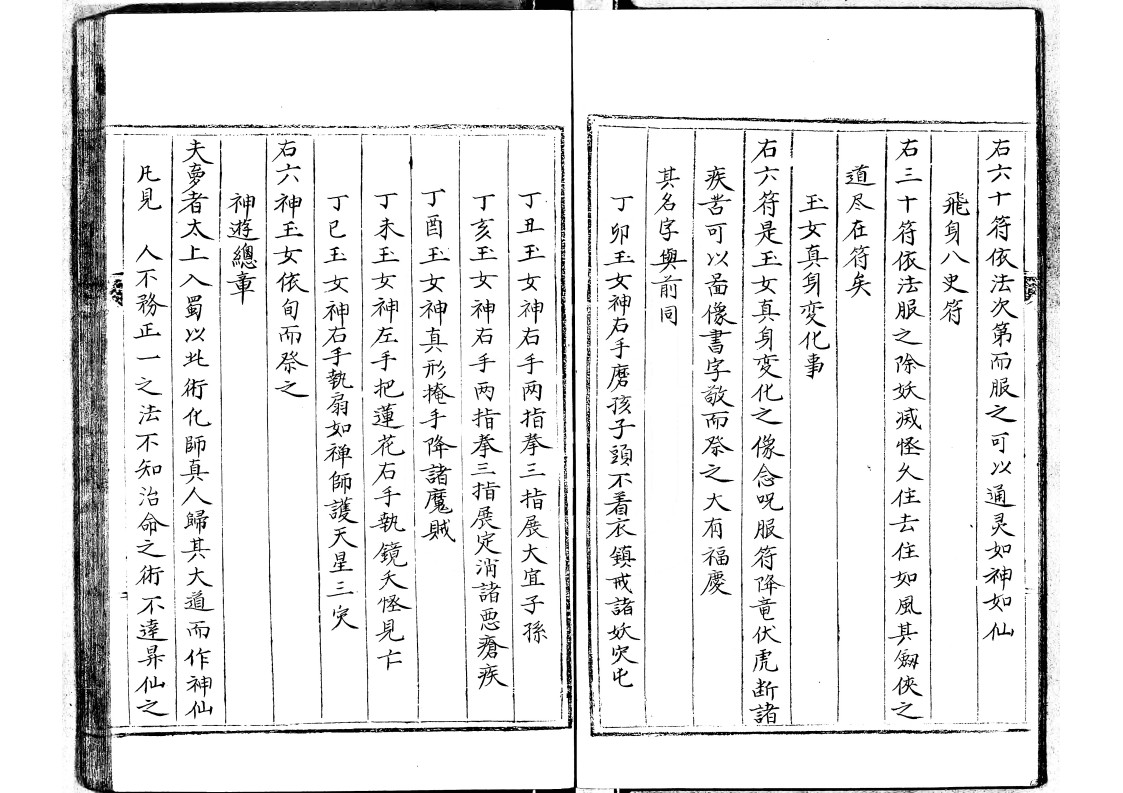 右六十符依法次第而服之可以通灵如神如仙
飛身八史符
右三十符依法服之除妖滅怪久住去住如風其劔俠之
道尽在符矣
玉女真身変化事
右六符是玉女真身変化之像念呪服符降竜伏虎断諸
疾苦可以啚像書字敬而祭之大有福慶
其名字與前同
丁卯玉女神右手磨孩子頭不着衣鎮戒諸妖灾屯
丁丑玉女神右手两指拳三指展大宜子孫
丁亥玉女神右手两指拳三指展定消諸悪瘡疾
丁酉玉女神真形掩手降諸魔賊
丁未玉女神左手把蓮花右手執鏡夭怪見亡
丁巳玉女神右手執扇如禅師護天星三灾
右六神玉女依旬而祭之
神遊總章
夫夢者太上入蜀以此術化師真人歸其大道而作神仙
凡見 人不務正一之法不知治命之術不達昇仙之